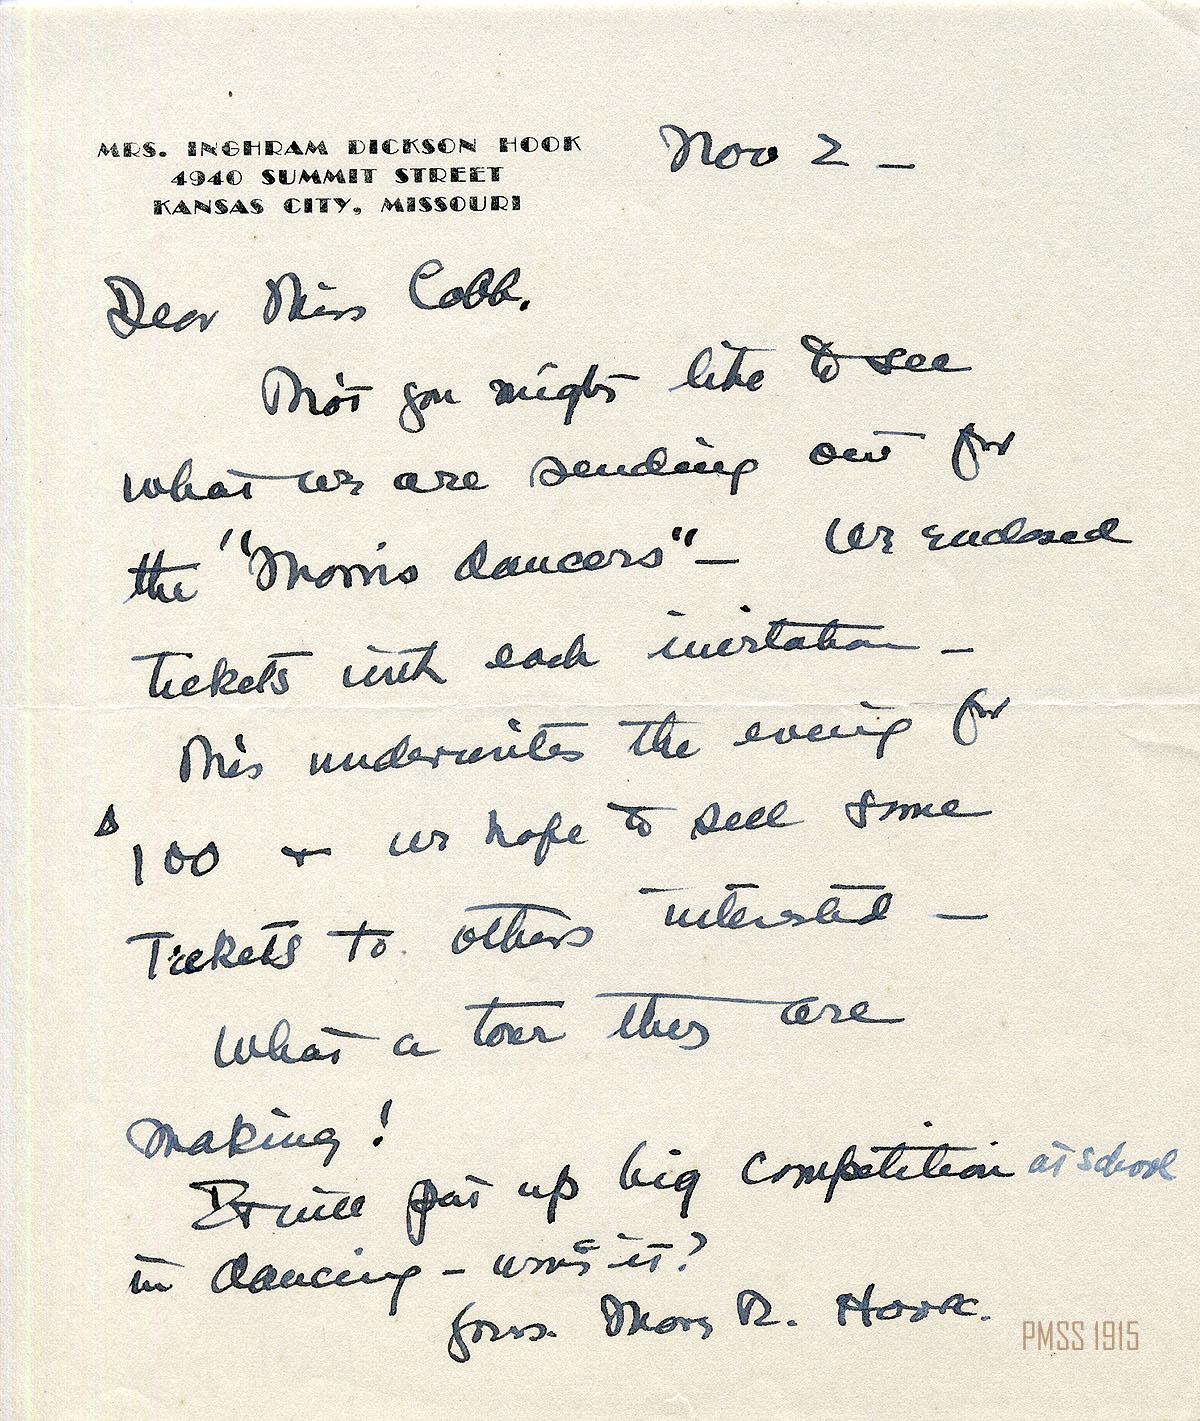 MRS. INGHRAM DICKSON HOOK
4940 SUMMIT STREET
KANSAS CITY, MISSOURI
Nov 2 –
Dear Miss Cobb.
Tho't you might like to see
what we are sending out for
the "Morris dancers" – We enclosed
tickets with each invitation –
This underwrites the evening for
$100 + we hope to sell some
Tickets to others interested –
What a tour they are
making!
It will put up big competition at school
in dancing – won't it?
Yours. Mary R. Hook.
PMSS 1915